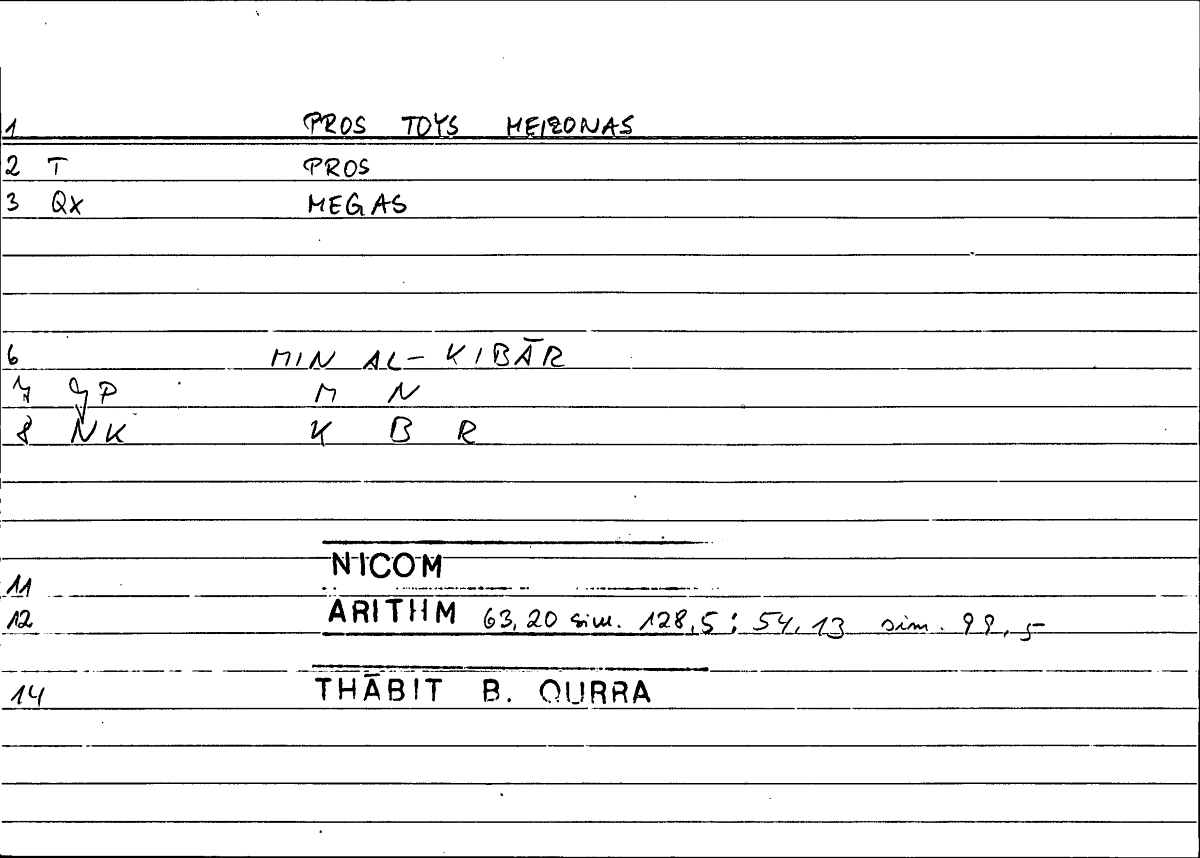 1 PROS TOYS MEIZONAS
2 T PROS
3 QX MEGAS
6 MIN AL-KIBĀR
7 YP M N
8 NK K B R
NICOM
11
12 ARITHM 63,20 sim. 128,5; 54,13 sim. 99,5
14 THĀBIT B. QURRA